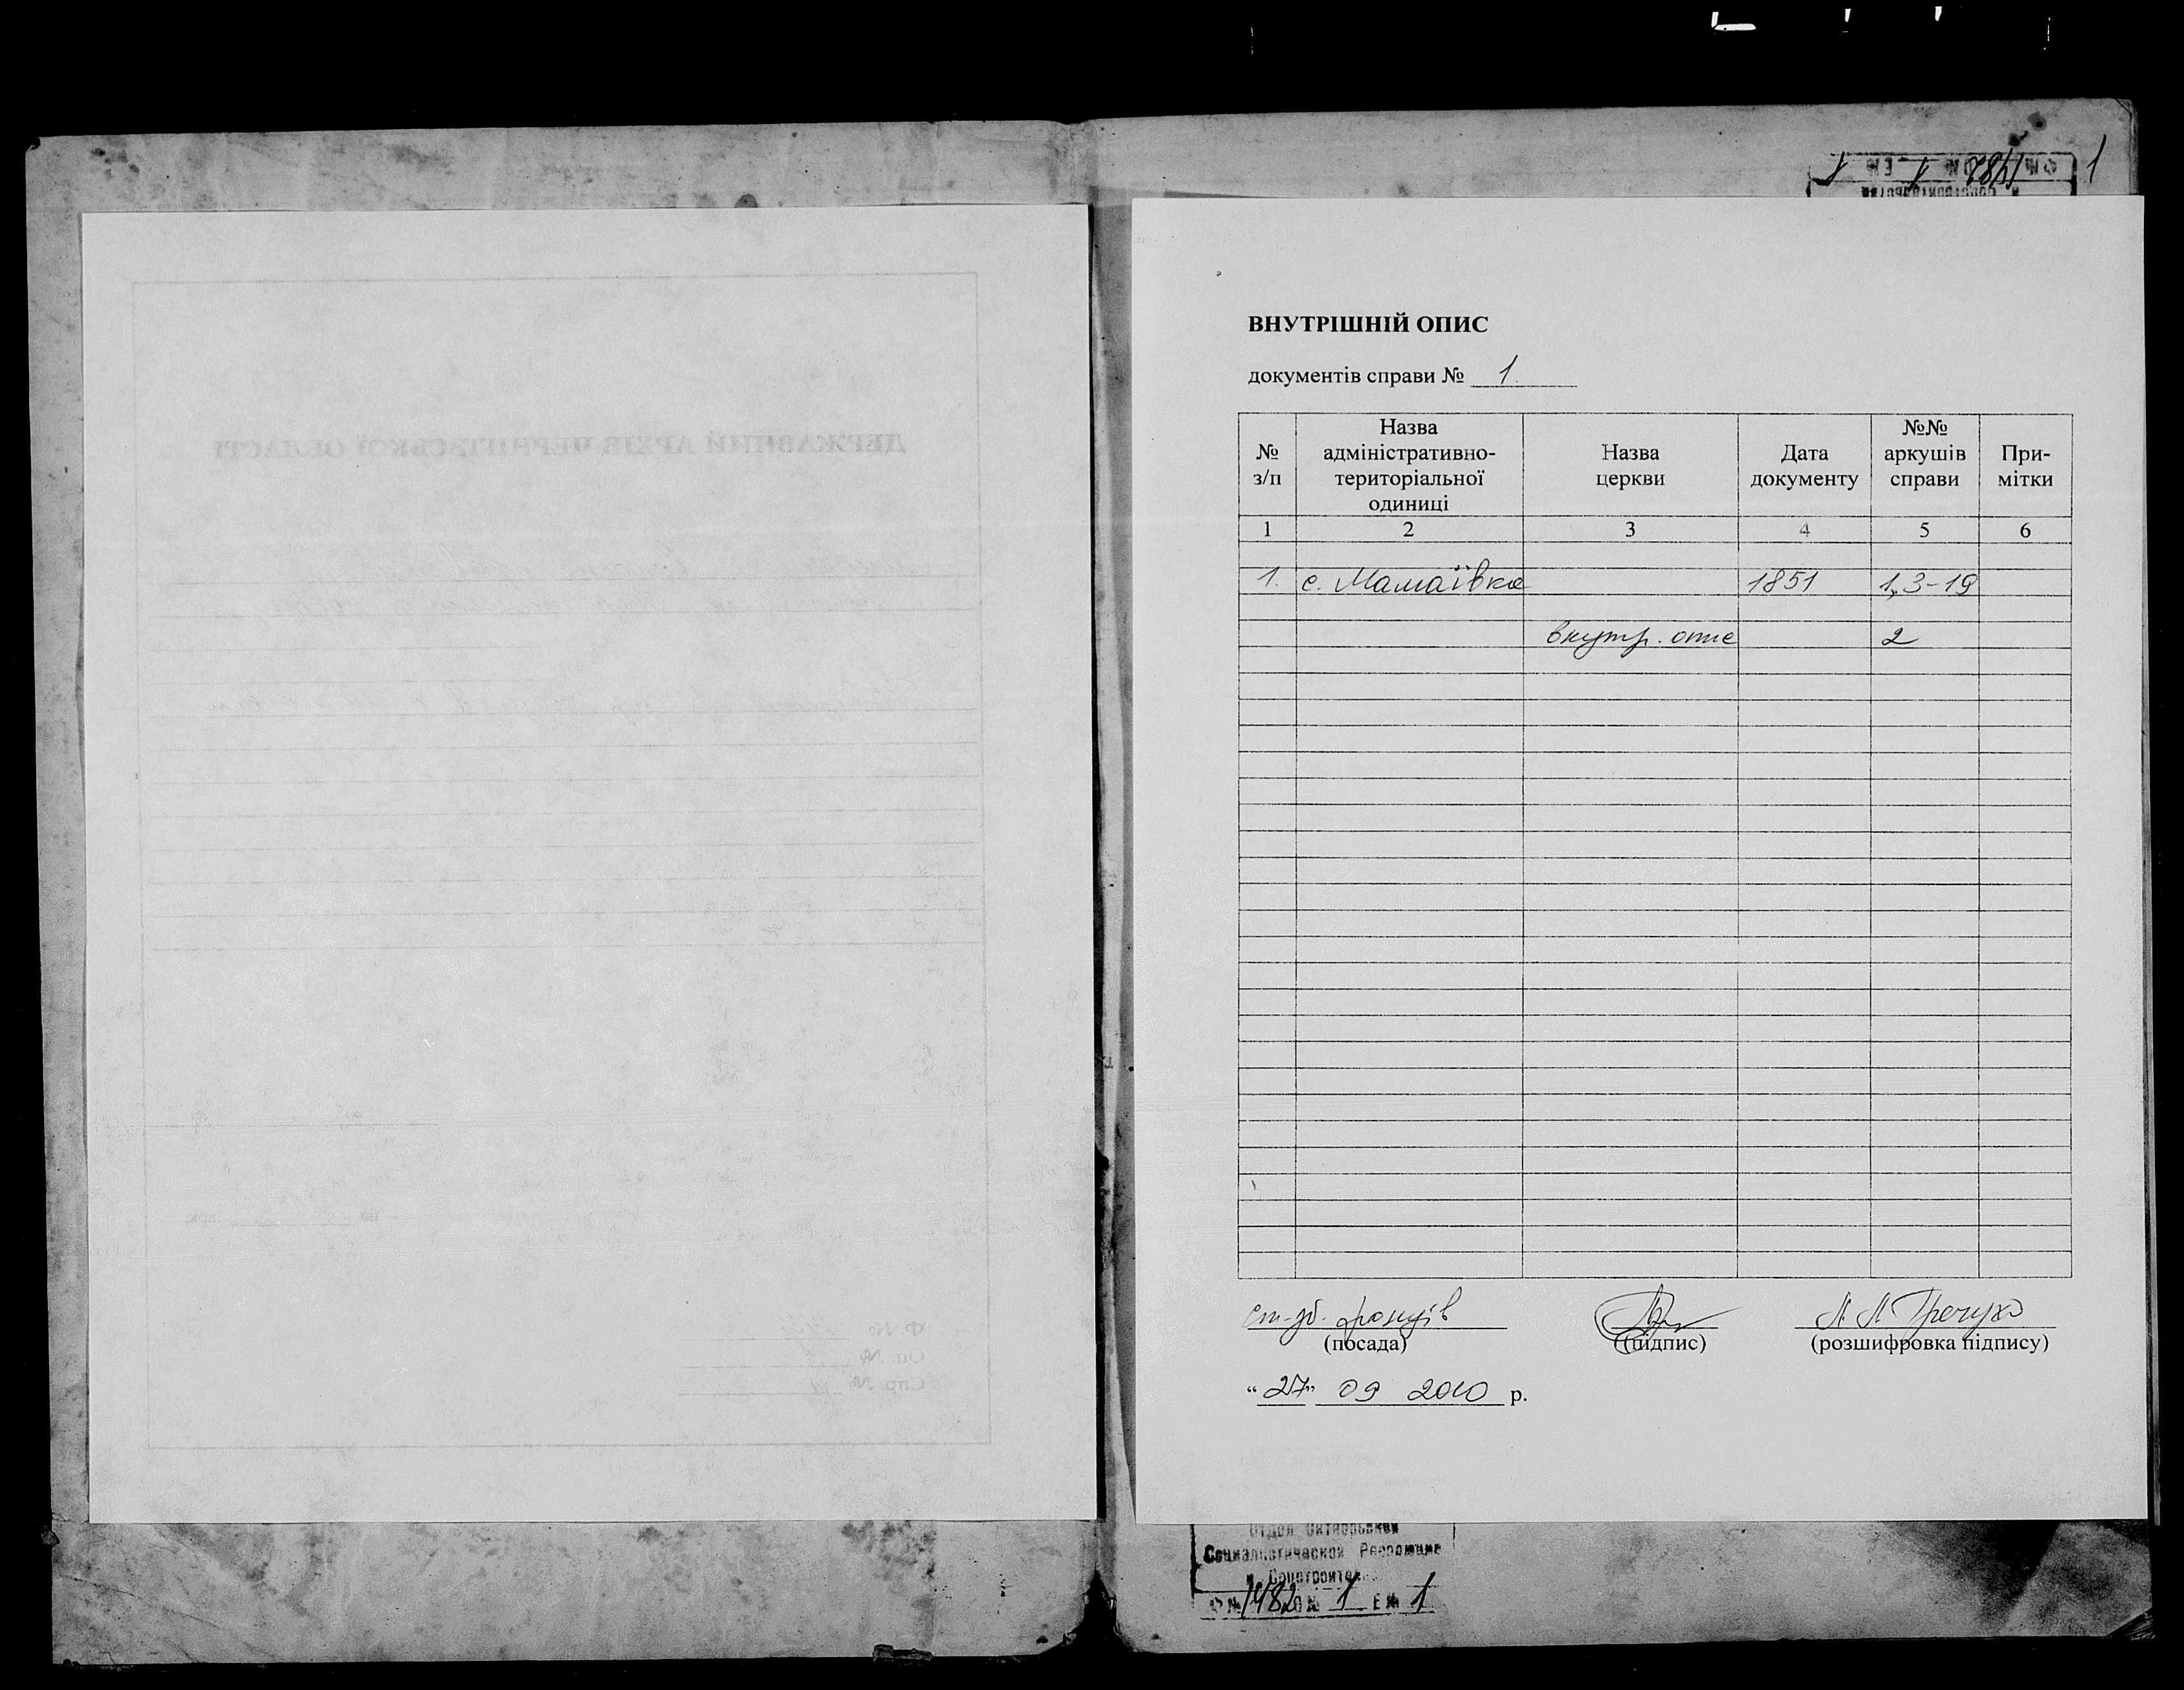 1
ВНУТРІШНІЙ ОПИС
документів справи № 1.
№ з/п
Назва адміністративно-територіальної одиниці
Назва церкви
Дата документу
№№ аркушів справи
При-мітки
1 2 3 4 5 6
1. с. Мамаївка 1851 1,3-19
внутр. опис 2
(посада) (підпис) (розшифровка підпису)
“27” 09 2010 р.
Отдел Октябрьской
Социалистической Революции
и Соцстроительства
Ф № 1482 О № 1 Е № 1
ДЕРЖАВНИЙ АРХІВ ЧЕРНІГІВСЬКОЇ ОБЛАСТІ
Ф. №
Оп. №
Спр. №